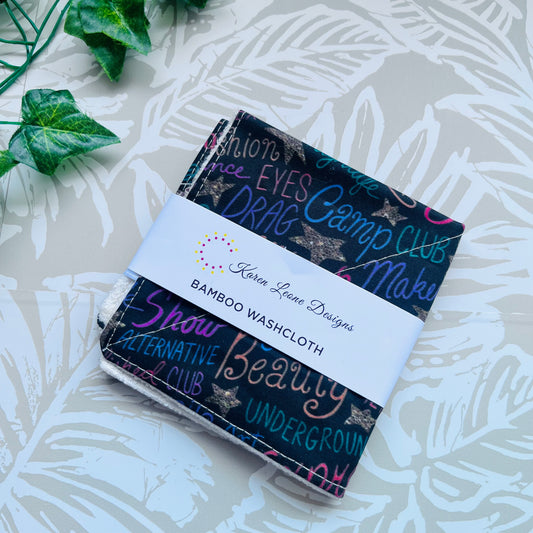 EYES
DRAG
Camp
CLUB
Make
Karen Leone Designs
BAMBOO WASHCLOTH
Show
ALTERNATIVE
Beauty
CLUB
UNDERGROUND